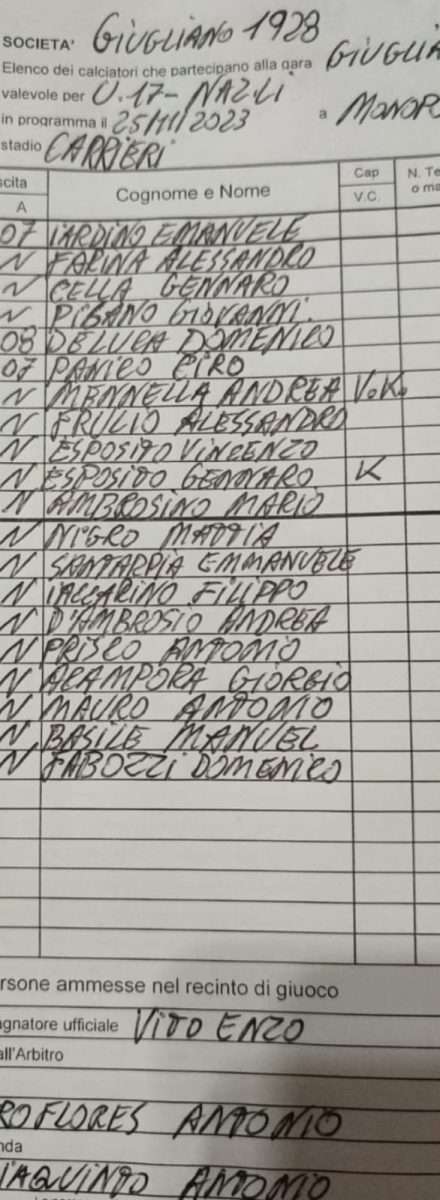 SOCIETA' GIUGLIANO 1928
Elenco dei calciatori che partecipano alla gara GIUGLIA
valevole per U.17- NAZ.LI
in programma il 25/11/2023 a MONOPO
stadio CARRIERI
scita Cognome e Nome Cap N. Te
A V.C. o ma
07 IARDINO EMANUELE
N FARINA ALESSANDRO
N CELLA GENNARO
N PISANO GIOVANNI.
08 DELUCA DOMENICO
07 PANICO CIRO
N MENNELLA ANDREA V.K.
N FRULIO ALESSANDRO
N ESPOSITO VINCENZO
N ESPOSITO GENNARO K
N AMBROSINO MARIO
N NIGRO MATTIA
N SANTARPIA EMMANUELE
N IACCARINO FILIPPO
N D'AMBROSIO ANDREA
N PRISCO ANTONIO
N ACAMPORA GIORGIO
N MAURO ANTONIO
N BASILE MANUEL
N FABOZZI DOMENICO
ersone ammesse nel recinto di giuoco
agnatore ufficiale VITO ENZO
all'Arbitro
ROFLORES ANTONIO
nda
IAQUINTO ANTONIO